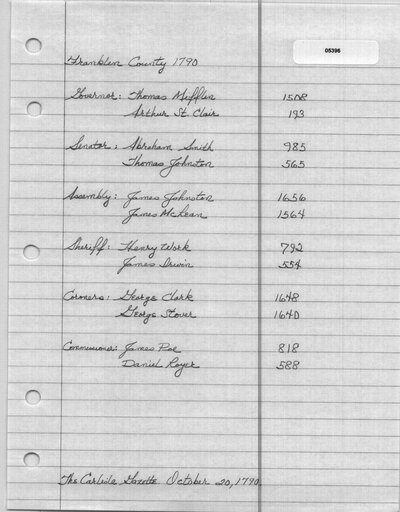 05396
Franklin County 1790
Governor: Thomas Mifflin 1508
Arthur St. Clair 193
Senator: Abraham Smith 985
Thomas Johnston 565
Assembly: James Johnston 1656
James McLean 1564
Sheriff: Henry Work 792
James Irwin 554
Coroners: George Clark 1648
George Stover 1640
Commissioner: James Poe 818
Daniel Royer 588
The Carlisle Gazette October 20, 1790